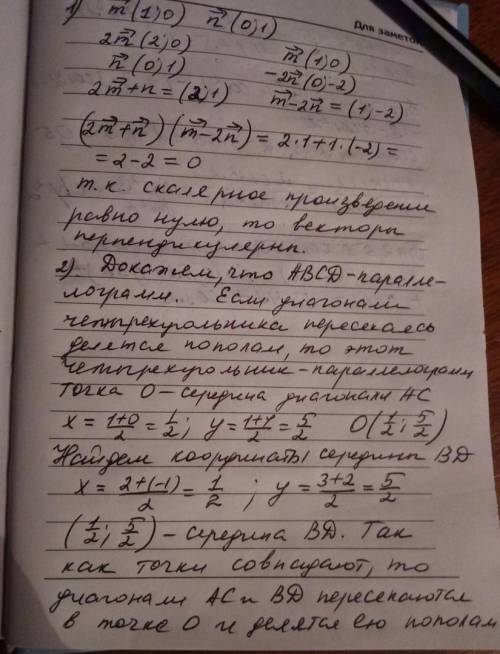 Для заметок
1) m⃗(1;0)   n⃗(0;1)
2m⃗(2;0)   m⃗(1;0)
n⃗(0;1)   -2n⃗(0;-2)
2m⃗+n=(2;1)   m⃗-2n⃗=(1;-2)
(2m⃗+n⃗)(m⃗-2n⃗)=2·1+1·(-2)=
=2-2=0
т.к. скалярное произведение
равно нулю, то векторы
перпендикулярны.
2) Докажем, что ABCD-паралле-
лограмм. Если диагонали
четырехугольника пересекаясь
делятся пополам, то этот
четырехугольник-параллелограмм
Точка O-середина диагонали AC
x = 1+0/2 = 1/2; y = 1+4/2 = 5/2   O(1/2; 5/2)
Найдем координаты середины BD
x = 2+(-1)/2 = 1/2; y = 3+2/2 = 5/2
(1/2; 5/2) - середина BD. Так
как точки совпадают, то
диагонали AC и BD пересекаются
в точке O и делятся ею пополам